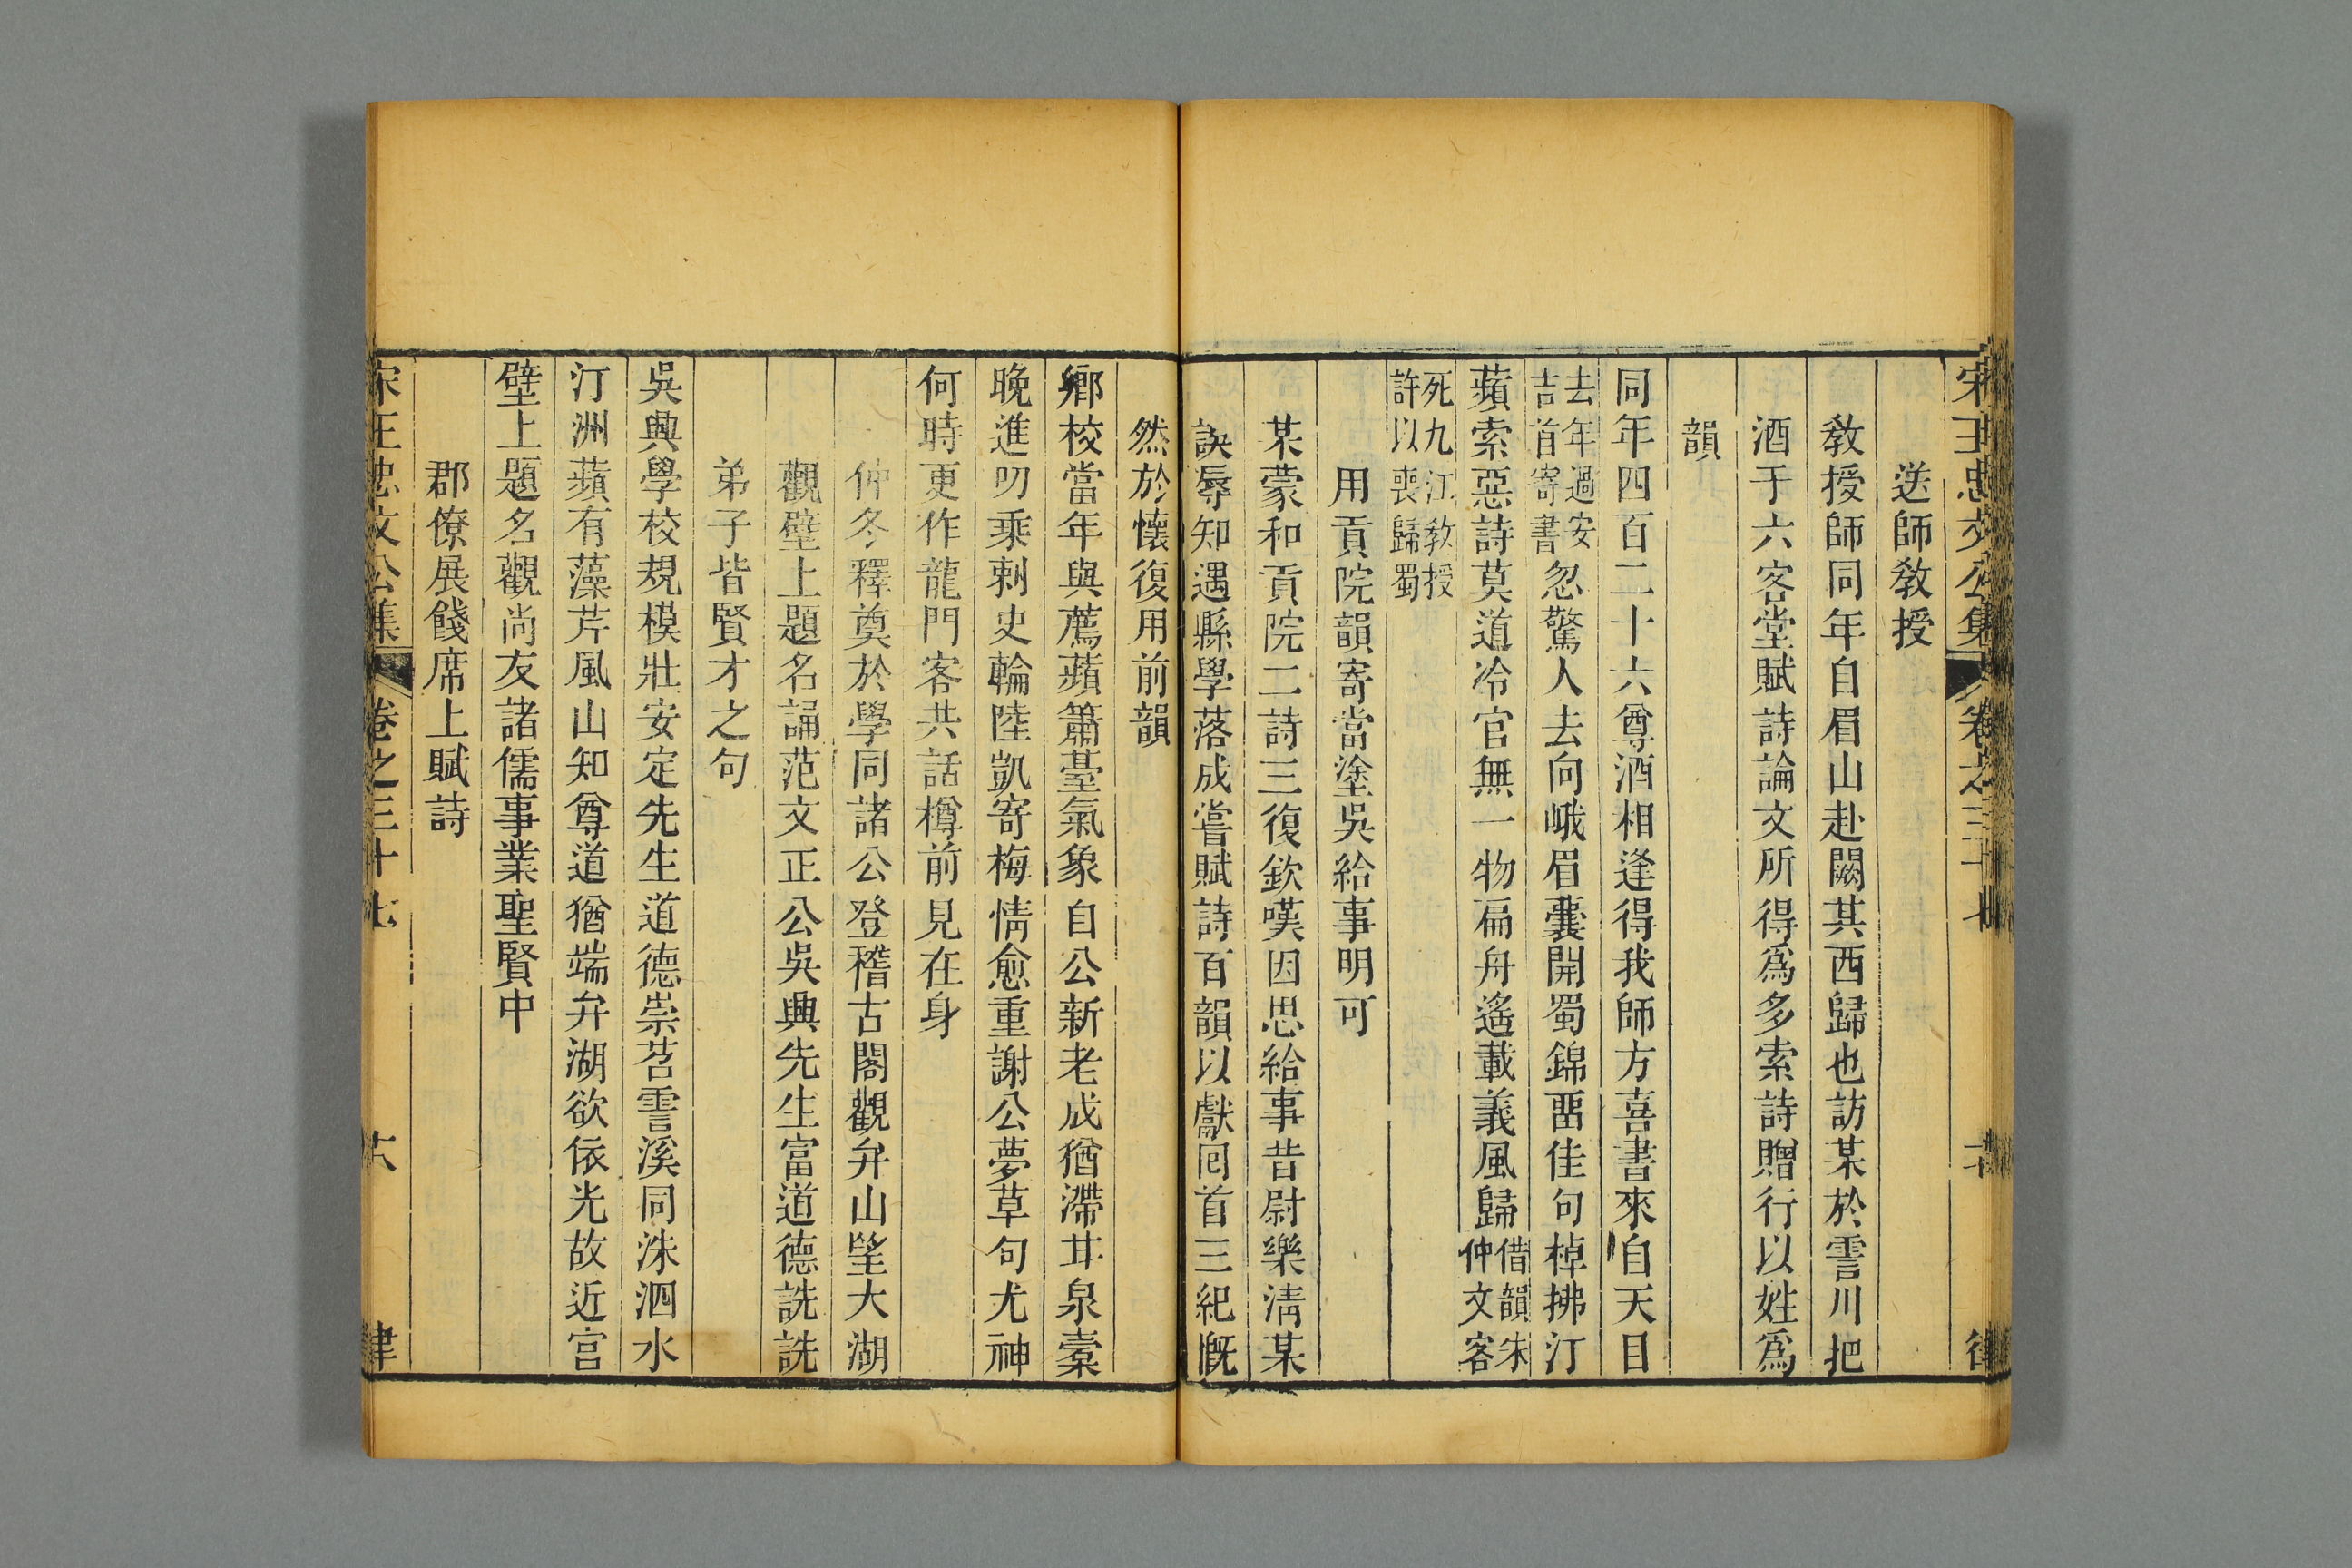 宋王忠文公集 卷之三十七
送師敎授
敎授師同年自眉山赴闕其西歸也訪某於霅川把
酒于六客堂賦詩論文所得爲多索詩贈行以姓爲
韻
同年四百二十六尊酒相逢得我師方喜書來自天目
去年過安
吉首寄書
忽驚人去向峨眉囊開蜀錦畱佳句棹拂汀
蘋索惡詩莫道冷官無一物扁舟遙載義風歸
借韻朱
仲文客
死九江敎授
許以喪歸蜀
用貢院韻寄當塗吳給事明可
某蒙和貢院二詩三復欽嘆因思給事昔尉樂淸某
諛辱知遇縣學落成嘗賦詩百韻以獻囘首三紀慨
然於懷復用前韻
鄉校當年與薦蘋簫臺氣象自公新老成猶滯甘泉槖
晚進叨乘刺史輪陸凱寄梅情愈重謝公夢草句尤神
何時更作龍門客共話樽前見在身
仲冬釋奠於學同諸公登稽古閣觀弁山望大湖
觀壁上題名誦范文正公吳興先生富道德詵詵
弟子皆賢才之句
吳興學校規模壯安定先生道德崇苕霅溪同洙泗水
汀洲蘋有藻芹風山知尊道猶端弁湖欲依光故近宫
壁上題名觀尚友諸儒事業聖賢中
郡僚展餞席上賦詩
宋王忠文公集 卷之三十七 六 律